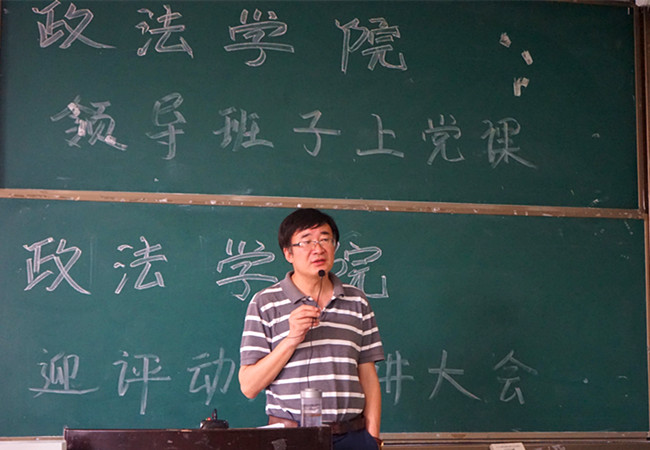 政法学院
领导班子上党课
政法学院
迎评动 讲大会